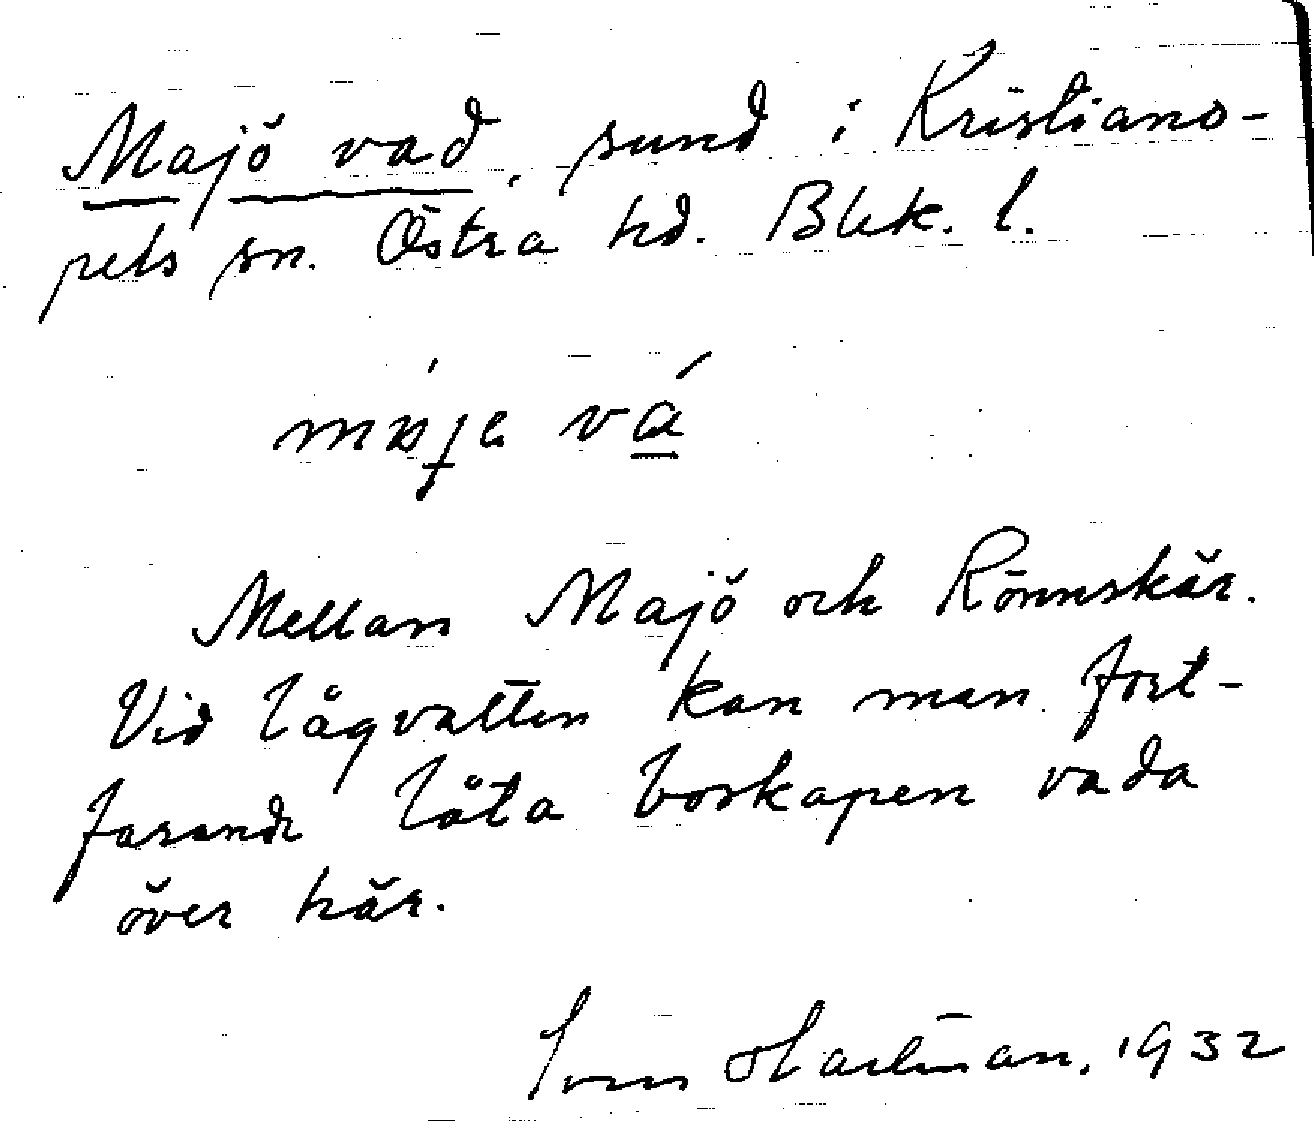 Majö vad, sund i Kristiano-
pels sn. Östra hd. Blek. l.
vá
Mellan Majö och Rönnskär.
Vid lågvatten kan man fort-
farande låta boskapen vada
över här.
Sven Hartman, 1932